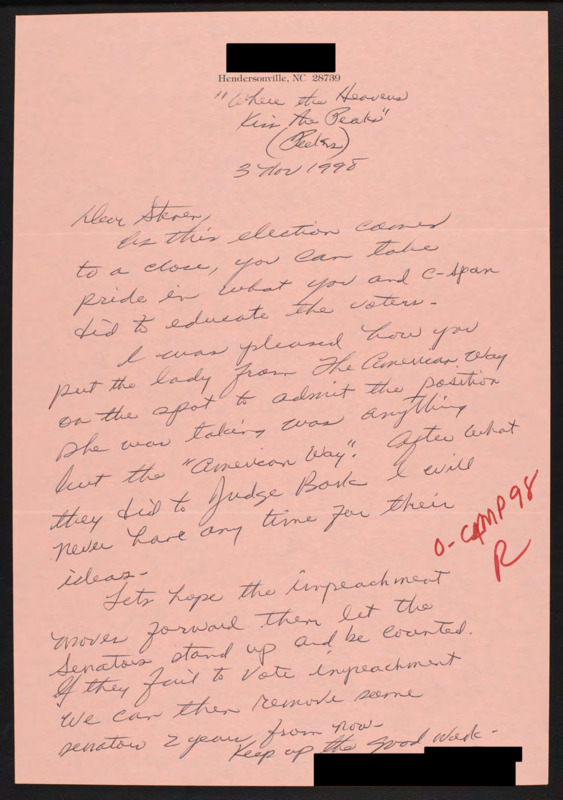 Hendersonville, NC 28739
"Where the Heavens
Kiss the Peaks"
(Peeks)
3 Nov 1998
Dear Steven,
As this election comes
to a close, you can take
pride in what you and C-Span
did to educate the voters.
I was pleased how you
put the lady from The American Way
on the spot to admit the position
she was taking was anything
but the "American Way". After what
they did to Judge Bork I will
never have any time for their
ideas-
Lets hope the impeachment
moves forward then let the
Senators stand up and be counted.
If they fail to vote impeachment
we can then remove some
senators 2 years from now-
Keep up the good work-
O-CAMP98
R